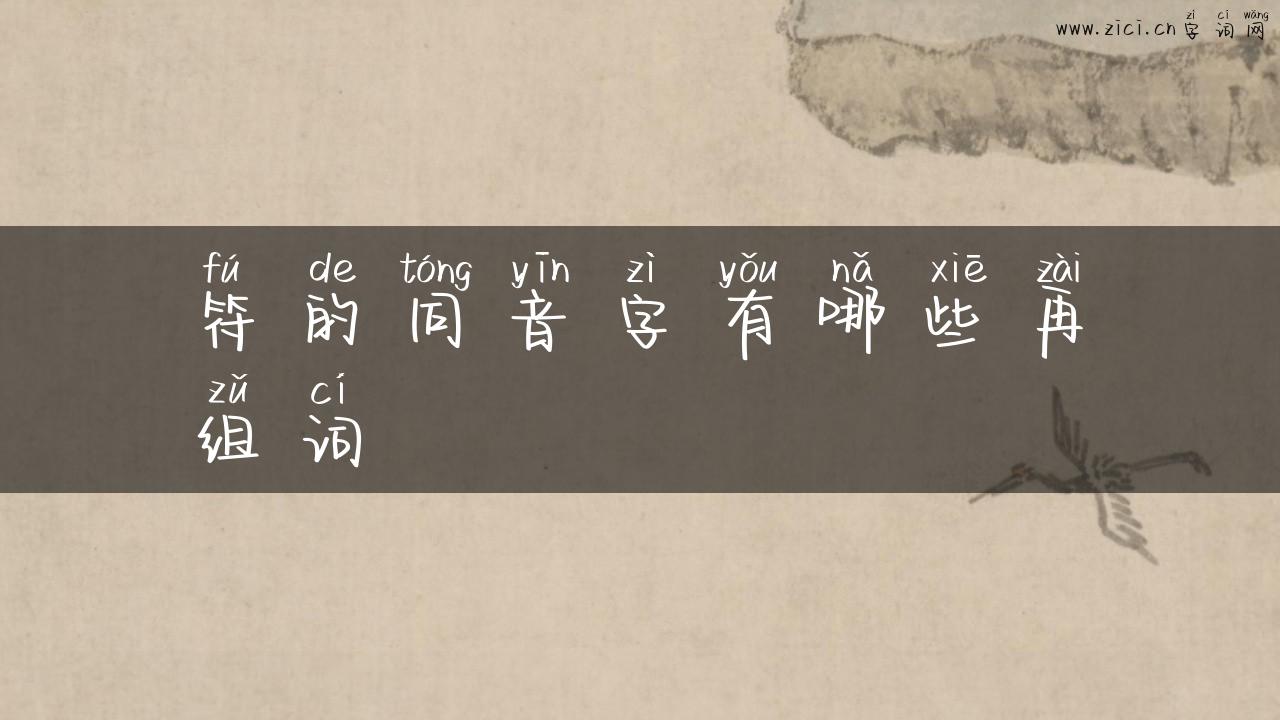 zì cí wǎng
www.zici.cn 字词网
fú de tóng yīn zì yǒu nǎ xiē zài
符的同音字有哪些再
zǔ cí
组词